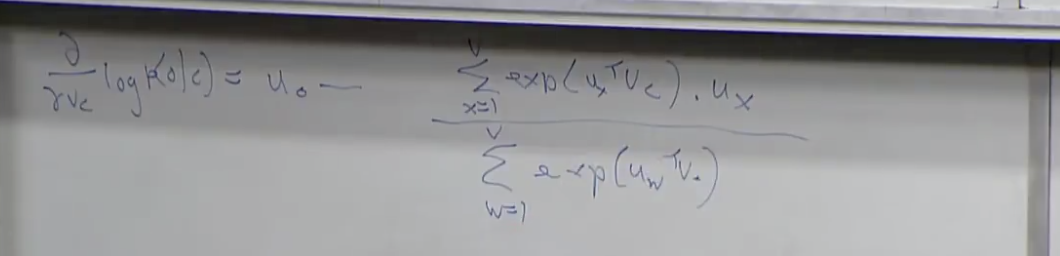 ∂/∂v_c log p(o|c) = u_o — (∑_{x=1}^{V} exp(u_x^T v_c) · u_x) / (∑_{w=1}^{V} exp(u_w^T v_c))